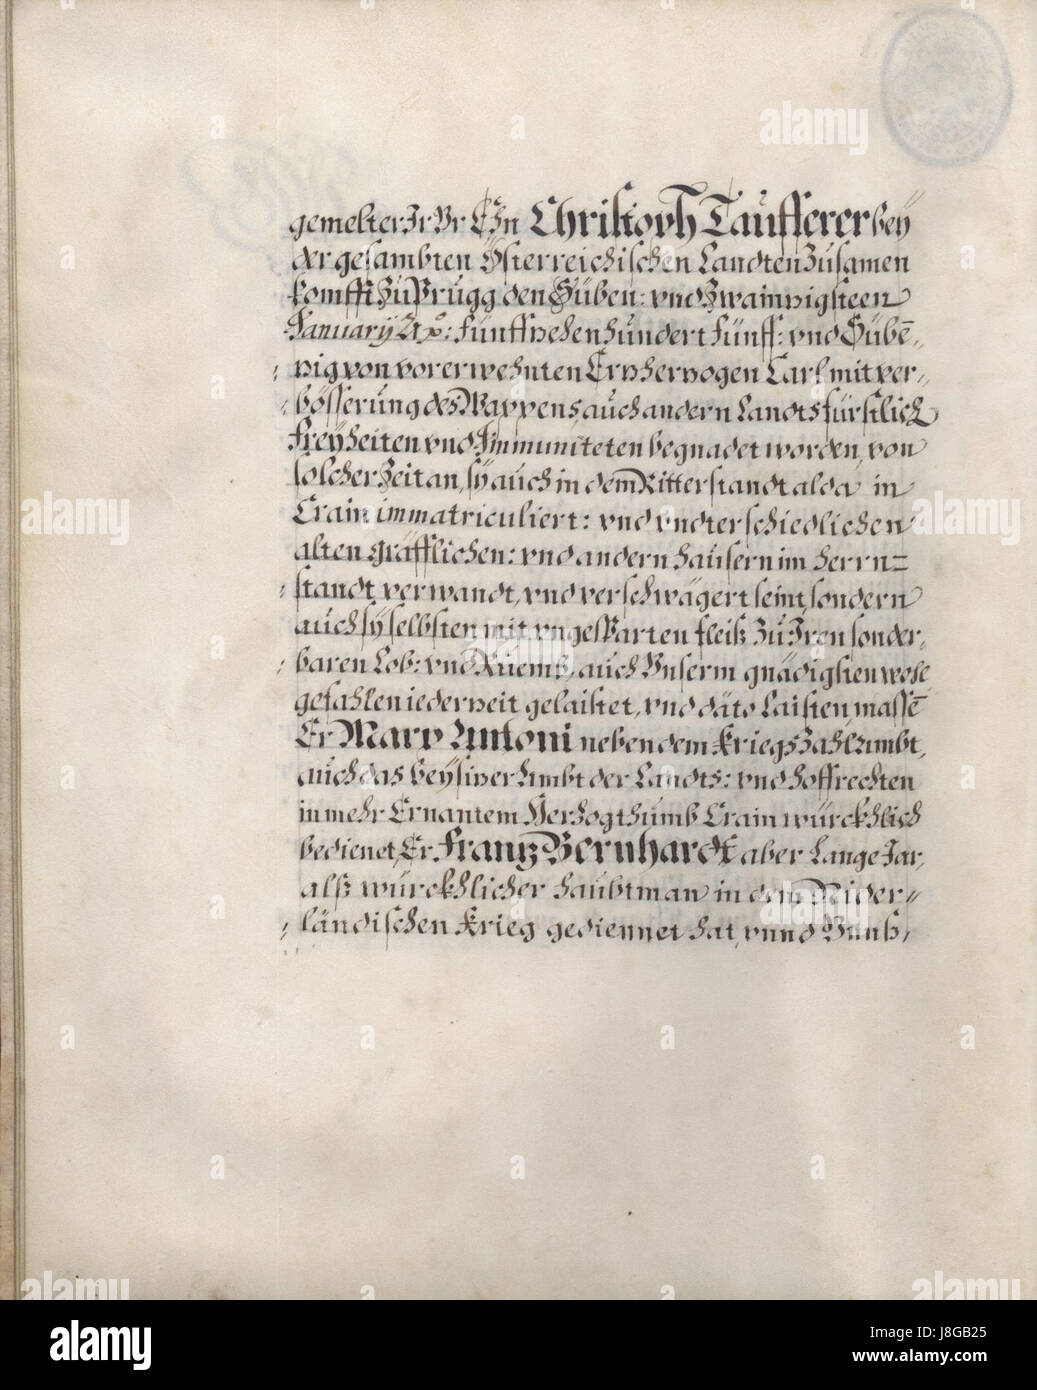 gemelter Ir Vr Ehn Christoph Taufferer bey
der gesambten Österreichischen Landten Zusamen
komfft Zu Prugg den Süben: vnd Zwainzigsteen
January Ao: fünffzehenhundert fünff: vnd Sübē„
„zig von vorerwehnten Erzherzogen Carl mit ver„
„bösserung des Wappens, auch andern Landtsfürstlich
freyheiten vnd Immuniteten begnadet worden, von
solcher Zeit an, sy auch in dem Ritterstandt alda in
Crain immatriculiert: vnd vndterschiedlichen
alten gräfflichen: vnd andern hausern im herrn=
„standt verwandt, vnd verschwägert seint, sondern
auch sy selbsten mit vngesparten fleiß Zu Iren sonder„
„baren Lob: vnd Ruemb, auch Vnserm gnädigsten wolgefahlen iederzeit gelaistet, vnd dato Laisten, massē
Er Marx Antoni neben dem Kriegs Zahlambt,
auch das beysizer Ambt der Landts: vnd hoffrechten
in mehr Ernantem Herzogthumb Crain würckhlich
bedienet, Er Frantz Bernhardt aber Lange Jar,
alß würckhlicher haubtman in dem Nider„
„ländischen Krieg gediennet hat, vnnd Vnnß,
alamy
alamy
Image ID: J8GB25
www.alamy.com